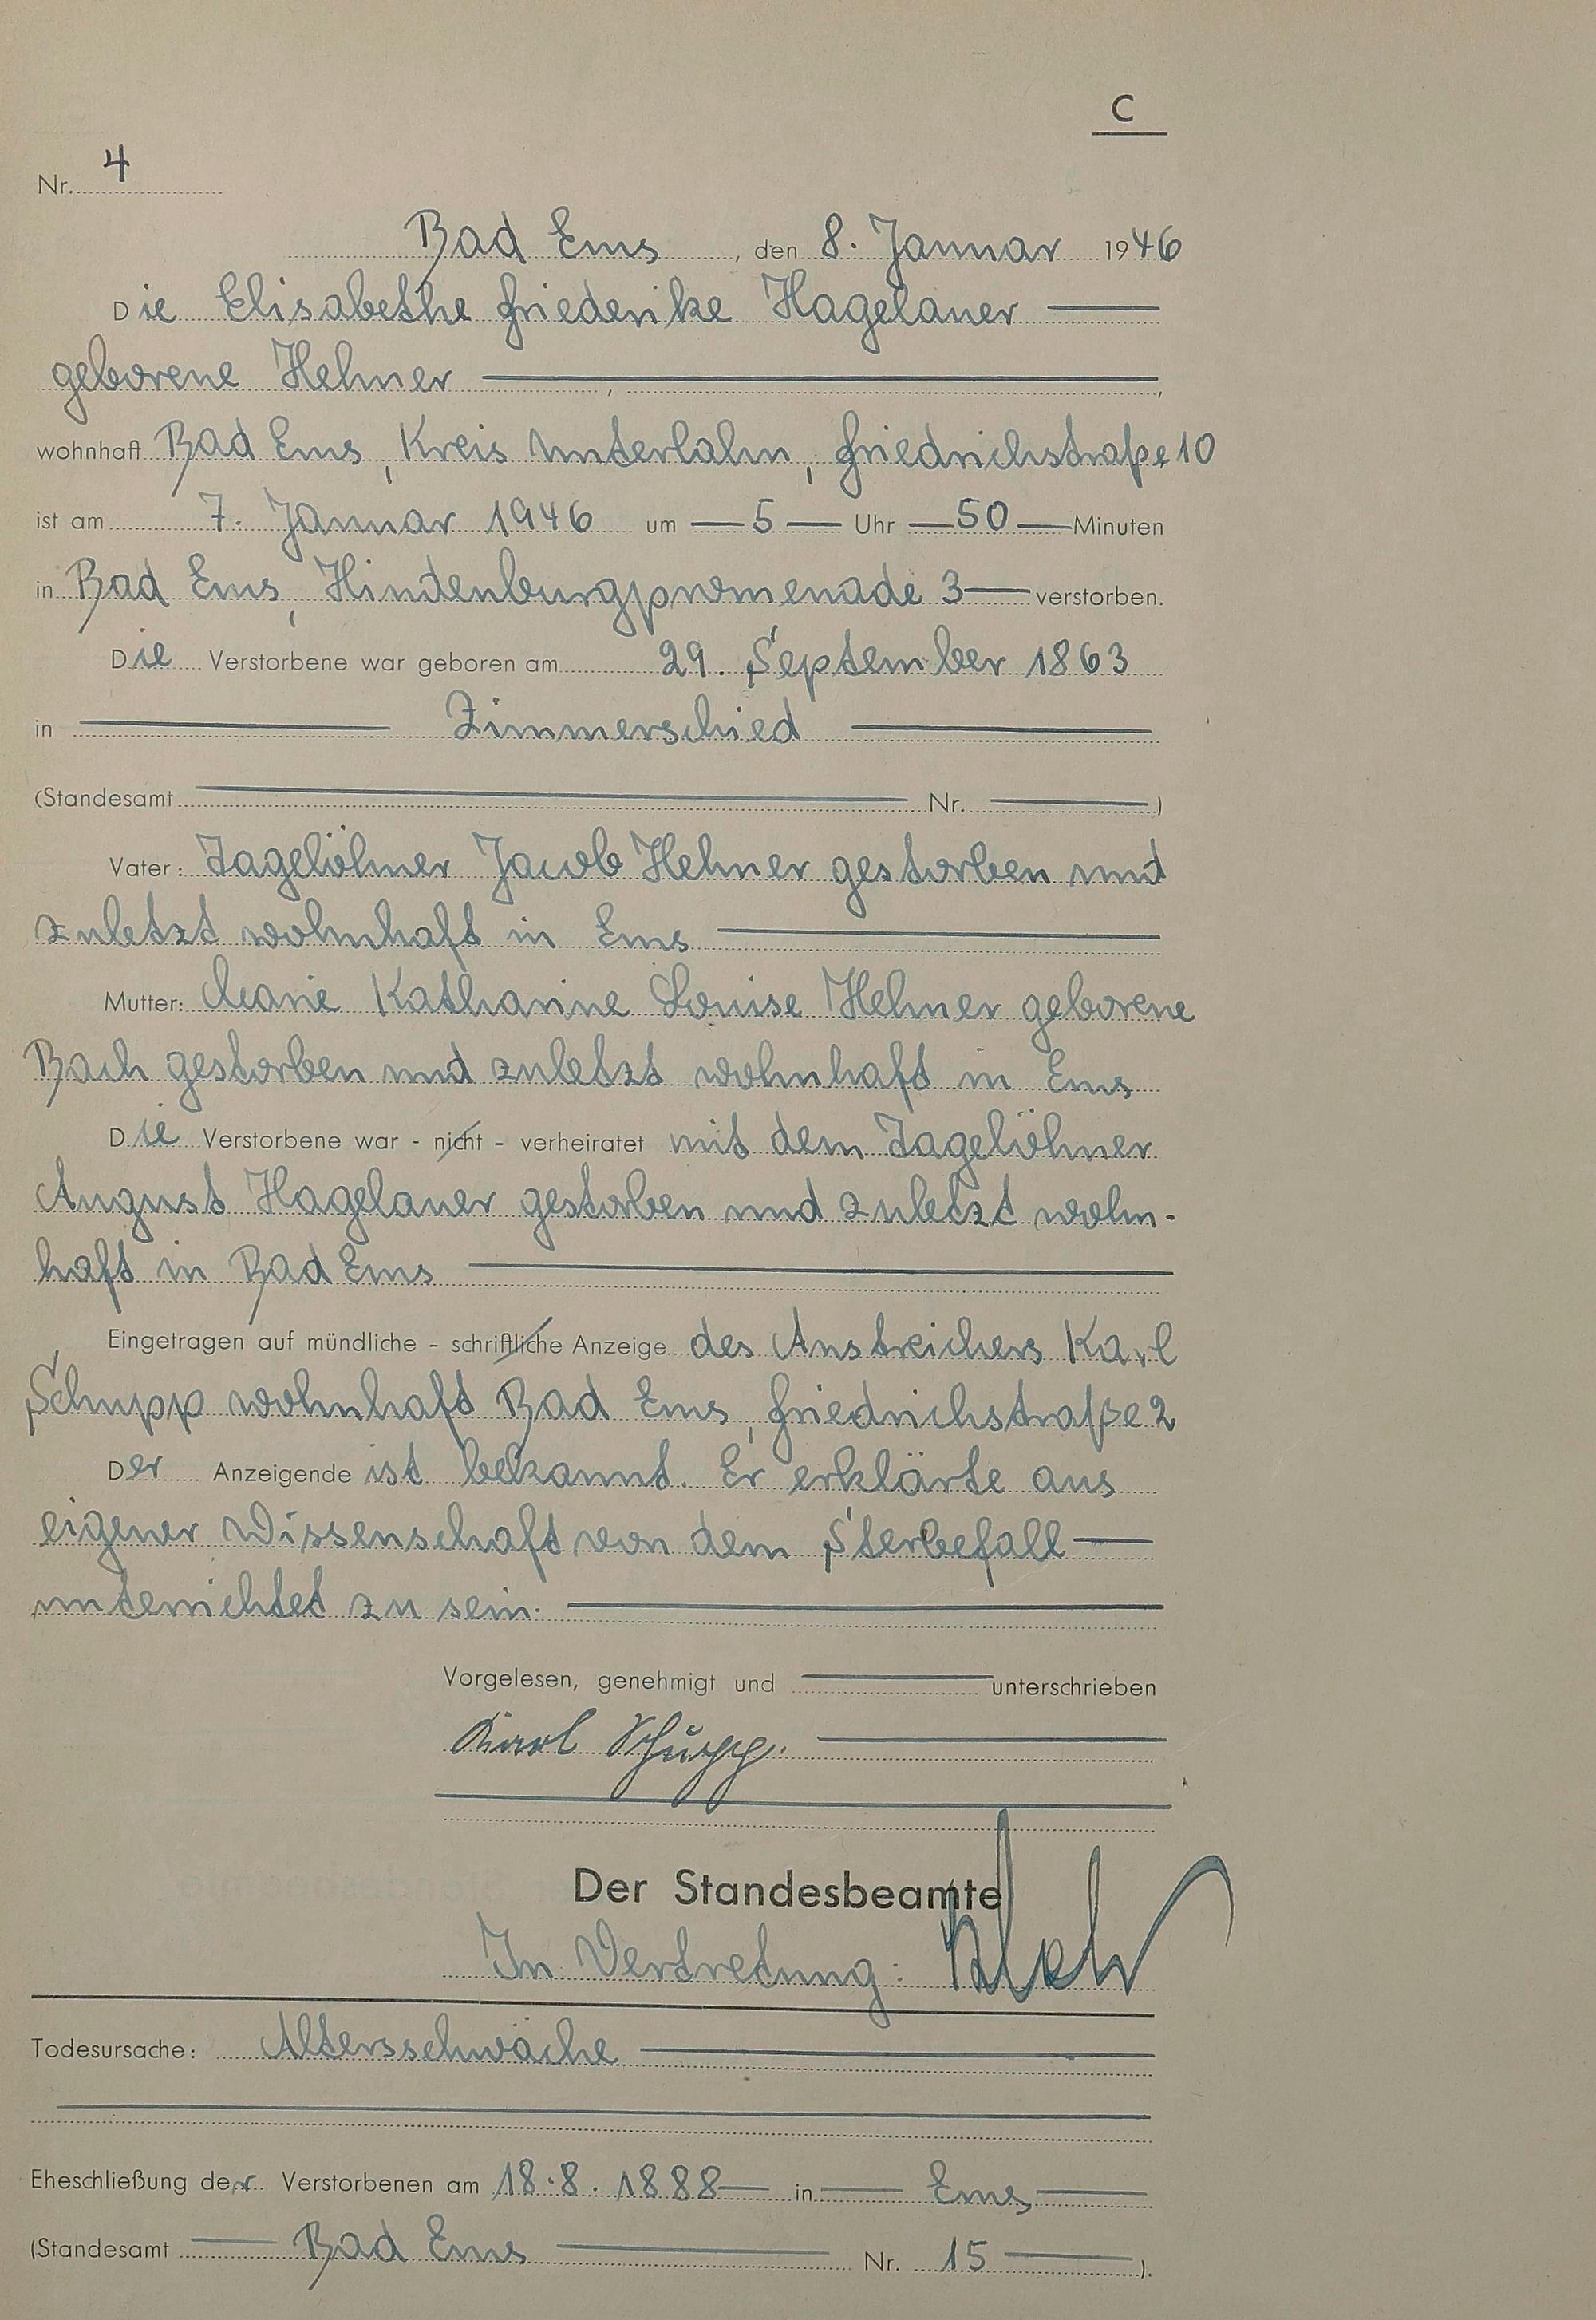 C
Nr. 4
Bad Ems, den 8. Januar 1946
Die Elisabethe Friederike Hagelauer
geborene Hehner,
wohnhaft Bad Ems, Kreis Unterlahn, Friedrichstraße 10
ist am 7. Januar 1946 um 5 Uhr 50 Minuten
in Bad Ems, Hindenburgpromenade 3 verstorben.
Die Verstorbene war geboren am 29. September 1863
in Zimmerschied
(Standesamt Nr. )
Vater: Tagelöhner Jacob Hehner gestorben und
zuletzt wohnhaft in Ems
Mutter: Marie Katharine Louise Hehner geborene
Bach gestorben und zuletzt wohnhaft in Ems
Die Verstorbene war - nicht - verheiratet mit dem Tagelöhner
August Hagelauer gestorben und zuletzt wohn-
haft in Bad Ems
Eingetragen auf mündliche - schriftliche Anzeige des Anstreichers Karl
Schupp wohnhaft Bad Ems, Friedrichstraße 2
Der Anzeigende ist bekannt. Er erklärte aus
eigener Wissenschaft von dem Sterbefall
unterrichtet zu sein.
Vorgelesen, genehmigt und unterschrieben
Karl Schupp.
Der Standesbeamte
In Vertretung:
Todesursache: Altersschwäche
Eheschließung der Verstorbenen am 18.8.1888 in Ems
(Standesamt Bad Ems Nr. 15 ).